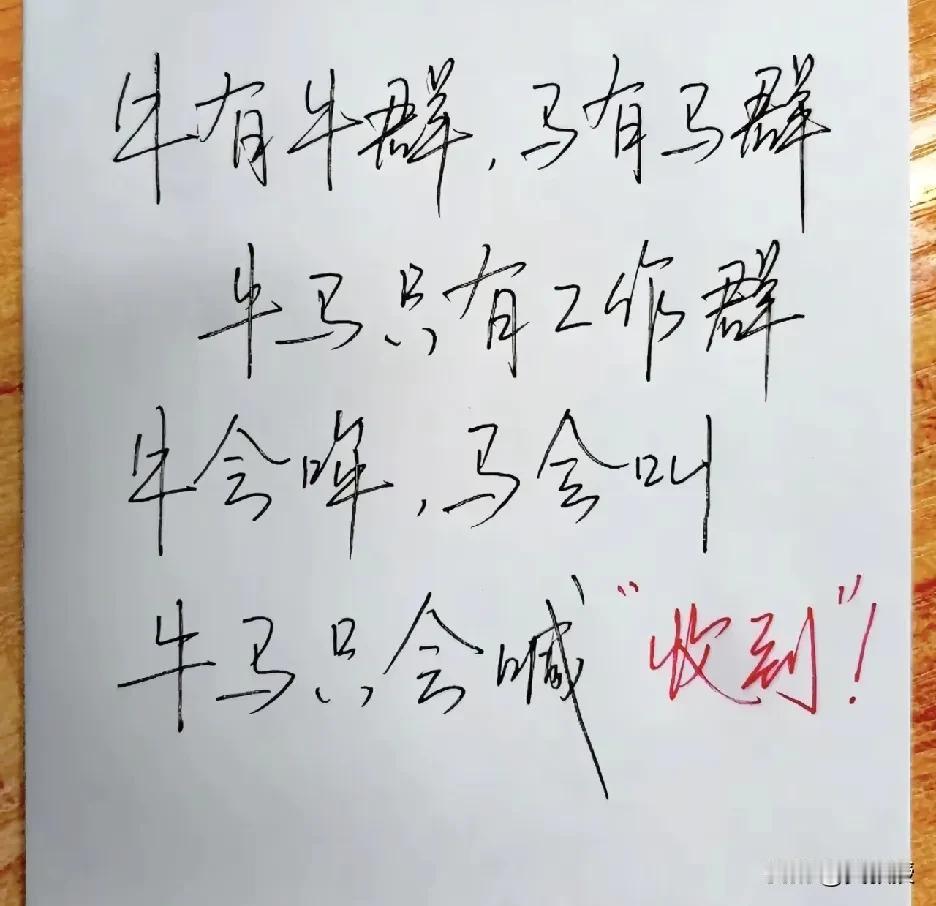 牛有牛群，马有马群
牛马只有工作群
牛会哞，马会叫
牛马只会喊“收到”！